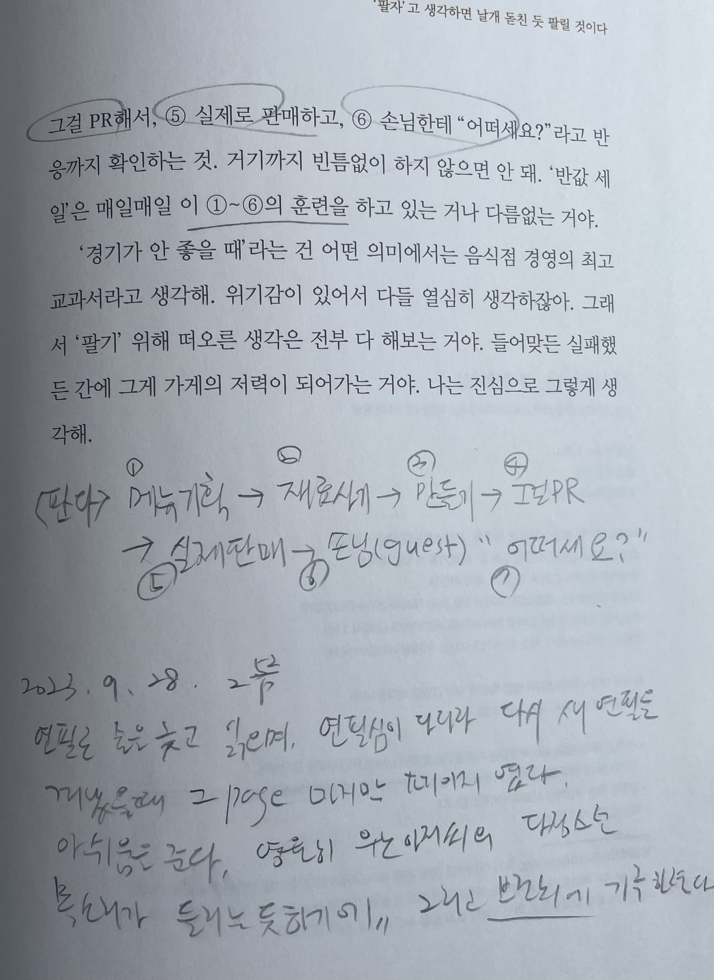 '팔자'고 생각하면 날개 돋친 듯 팔릴 것이다
그걸 PR해서, ⑤ 실제로 판매하고, ⑥ 손님한테 “어떠세요?”라고 반
응까지 확인하는 것. 거기까지 빈틈없이 하지 않으면 안 돼. ‘반값 세
일’은 매일매일 이 ①~⑥의 훈련을 하고 있는 거나 다름없는 거야.
‘경기가 안 좋을 때’라는 건 어떤 의미에서는 음식점 경영의 최고
교과서라고 생각해. 위기감이 있어서 다들 열심히 생각하잖아. 그래
서 ‘팔기’ 위해 떠오른 생각은 전부 다 해보는 거야. 들어맞든 실패했
든 간에 그게 가게의 저력이 되어가는 거야. 나는 진심으로 그렇게 생
각해.
① ② ③ ④
<판다> 메뉴기획 → 재료사기 → 만들기 → 그걸PR
→ 실제판매 → 손님(guest) “어떠세요?”
⑤ ⑥ ⑦
2023. 9. 28. 2
연필로 줄을 긋고 읽으며, 연필심이 다 다시 새 연필을
꺼냈을때 그 page 마지만 페이지 였다.
아쉬움을 준다, 영원히 우노아저씨의 다정스런
목소리가 들리는 듯하기에,, 그리고 기록한다